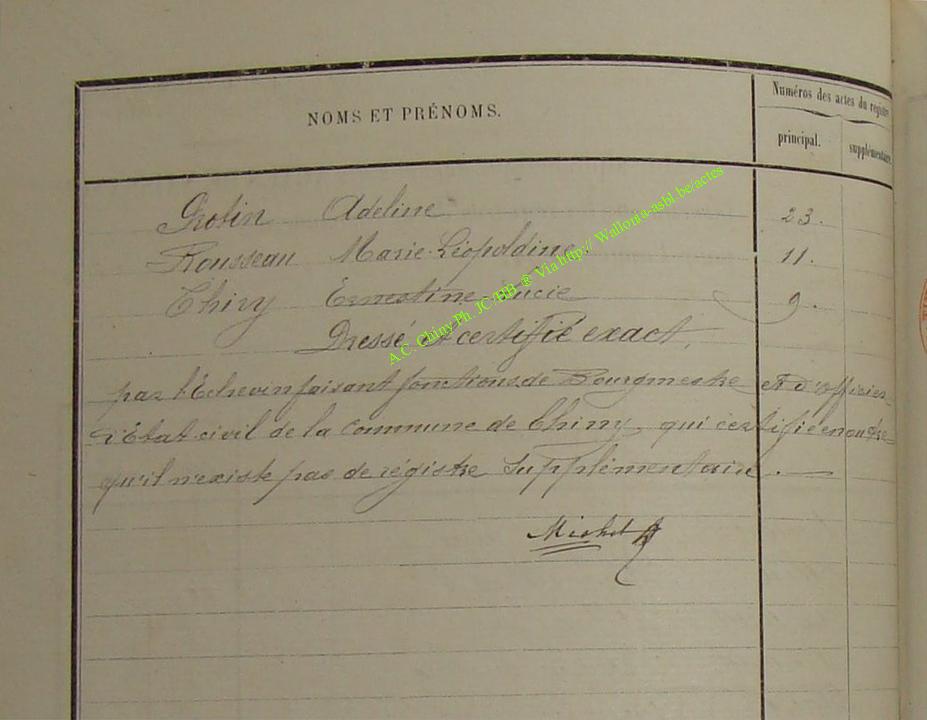 NOMS ET PRÉNOMS.
Numéros des actes du registre
principal.
supplémentaire.
Protin Adeline 23.
Rousseau Marie-Léopoldine. 11.
Thiry Ernestine Lucie 9.
Dressé et certifié exact,
par l'Echevin faisant fonctions de Bourgmestre et d'officier
d'Etat-civil de la Commune de Chiny, qui certifie en outre
qu'il n'existe pas de régistre supplémentaire.
Michel
A.C. Chiny Ph. JC-HB @ Via http:// Wallonia-asbl.be/actes